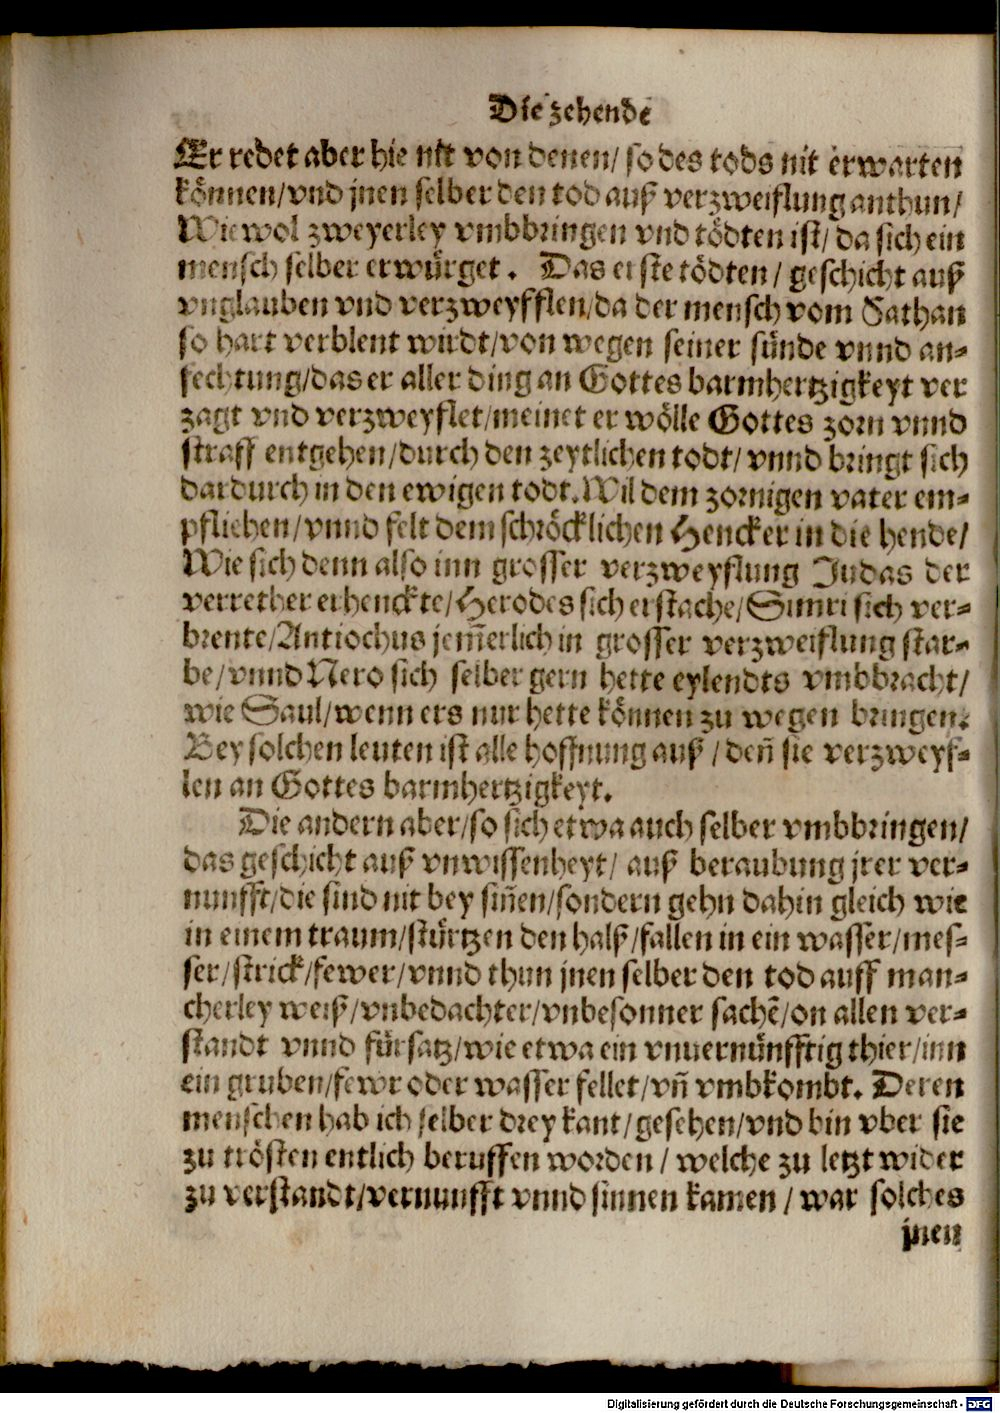 Die zehende
Er redet aber hie nit von denen/ so des tods nit erwarten
können/vnd jnen selber den tod auß verzweiflung anthun/
Wiewol zweyerley vmbbringen vnd tödten ist/ da sich ein
mensch selber erwürget. Das erste tödten/ geschicht auß
vnglauben vnd verzweyfflen/da der mensch vom Sathan
so hart verblent wirdt/von wegen seiner sünde vnnd an-
fechtung/das er aller ding an Gottes barmhertzigkeyt ver
zagt vnd verzweyflet/meinet er wölle Gottes zorn vnnd
straff entgehen/durch den zeytlichen todt/ vnnd bringt sich
dardurch in den ewigen todt. Wil dem zornigen vater em-
pfliehen/vnnd felt dem schröcklichen Hencker in die hende/
Wie sich denn also inn grosser verzweyflung Judas der
verrether erhenckte/Herodes sich erstache/Simri sich ver-
brente/Antiochus jem̃erlich in grosser verzweiflung star-
be/vnnd Nero sich selber gern hette eylendts vmbbracht/
wie Saul/wenn ers nur hette können zu wegen bringen.
Bey solchen leuten ist alle hoffnung auß/deñ sie verzweyf-
len an Gottes barmhertzigkeyt.
Die andern aber/so sich etwa auch selber vmbbringen/
das geschicht auß vnwissenheyt/ auß beraubung jrer ver-
nunfft/die sind nit bey siñen/sondern gehn dahin gleich wie
in einem traum/stürtzen den halß/fallen in ein wasser/mes-
ser/strick/fewer/vnnd thun jnen selber den tod auff man-
cherley weiß/vnbedachter/vnbesonner sachẽ/on allen ver-
standt vnnd fürsatz/wie etwa ein vnuernünfftig thier/inn
ein gruben/fewr oder wasser fellet/vñ vmbkombt. Deren
menschen hab ich selber drey kant/gesehen/vnd bin vber sie
zu trösten entlich beruffen worden/ welche zu letzt wider
zu verstandt/vernunfft vnnd sinnen kamen/ war solches
jnen
Digitalisierung gefördert durch die Deutsche Forschungsgemeinschaft - DFG